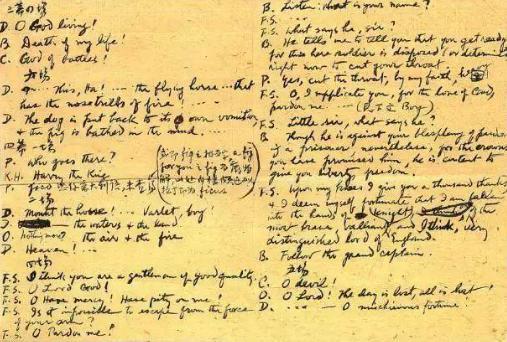 三幕七場
D. O God living!
B. Death of my life!
C. God of battles!
D. ···· This, ha! ···· the flying horse ···· that
has the nosetrills of fire! ····
D. The dog is put back to its own vomition
& the pig is bathed in the mud. ····
四幕一場
P. Who goes there?
K.H. Harry the King
P.
二場
D. Mount the horse! ···· Varlet, boy
D. the waters & the land
O. nothing more? the air & the fire
D. Heaven! ····
四場
F.S. I think you are a gentleman of good quality.
F.S. O Lord God!
F.S. O Have mercy! Have pity on me!
F.S. Is it impossible to escape from the force
of your arm?
F.S. O Pardon me!
B. Listen: what is your name?
F.S. ····
F.S. What says he, sir?
B. He tells me to tell you that you get ready
for this here soldier is disposed (or determined)
right now to cut your throat.
P. Yes, cut the throat, by my faith,
F.S. O, I supplicate you, for the love of God,
pardon me ····
F.S. Little sir, what says he?
B. Though he is against your blasphemy of pardon
of a prisoner, nevertheless, for the crowns
you have promised him, he is content to
give you liberty, freedom.
F.S. Upon my knees I give you a thousand thanks
& I deem myself fortunate that I am fallen
into the hands of the
most brave, valliant, and I think, very
distinguished lord of England.
B. Follow the grand captain.
五場
C. O devil!
O. O Lord! the day is lost, all is lost!
D. ···· O mischievous fortune!